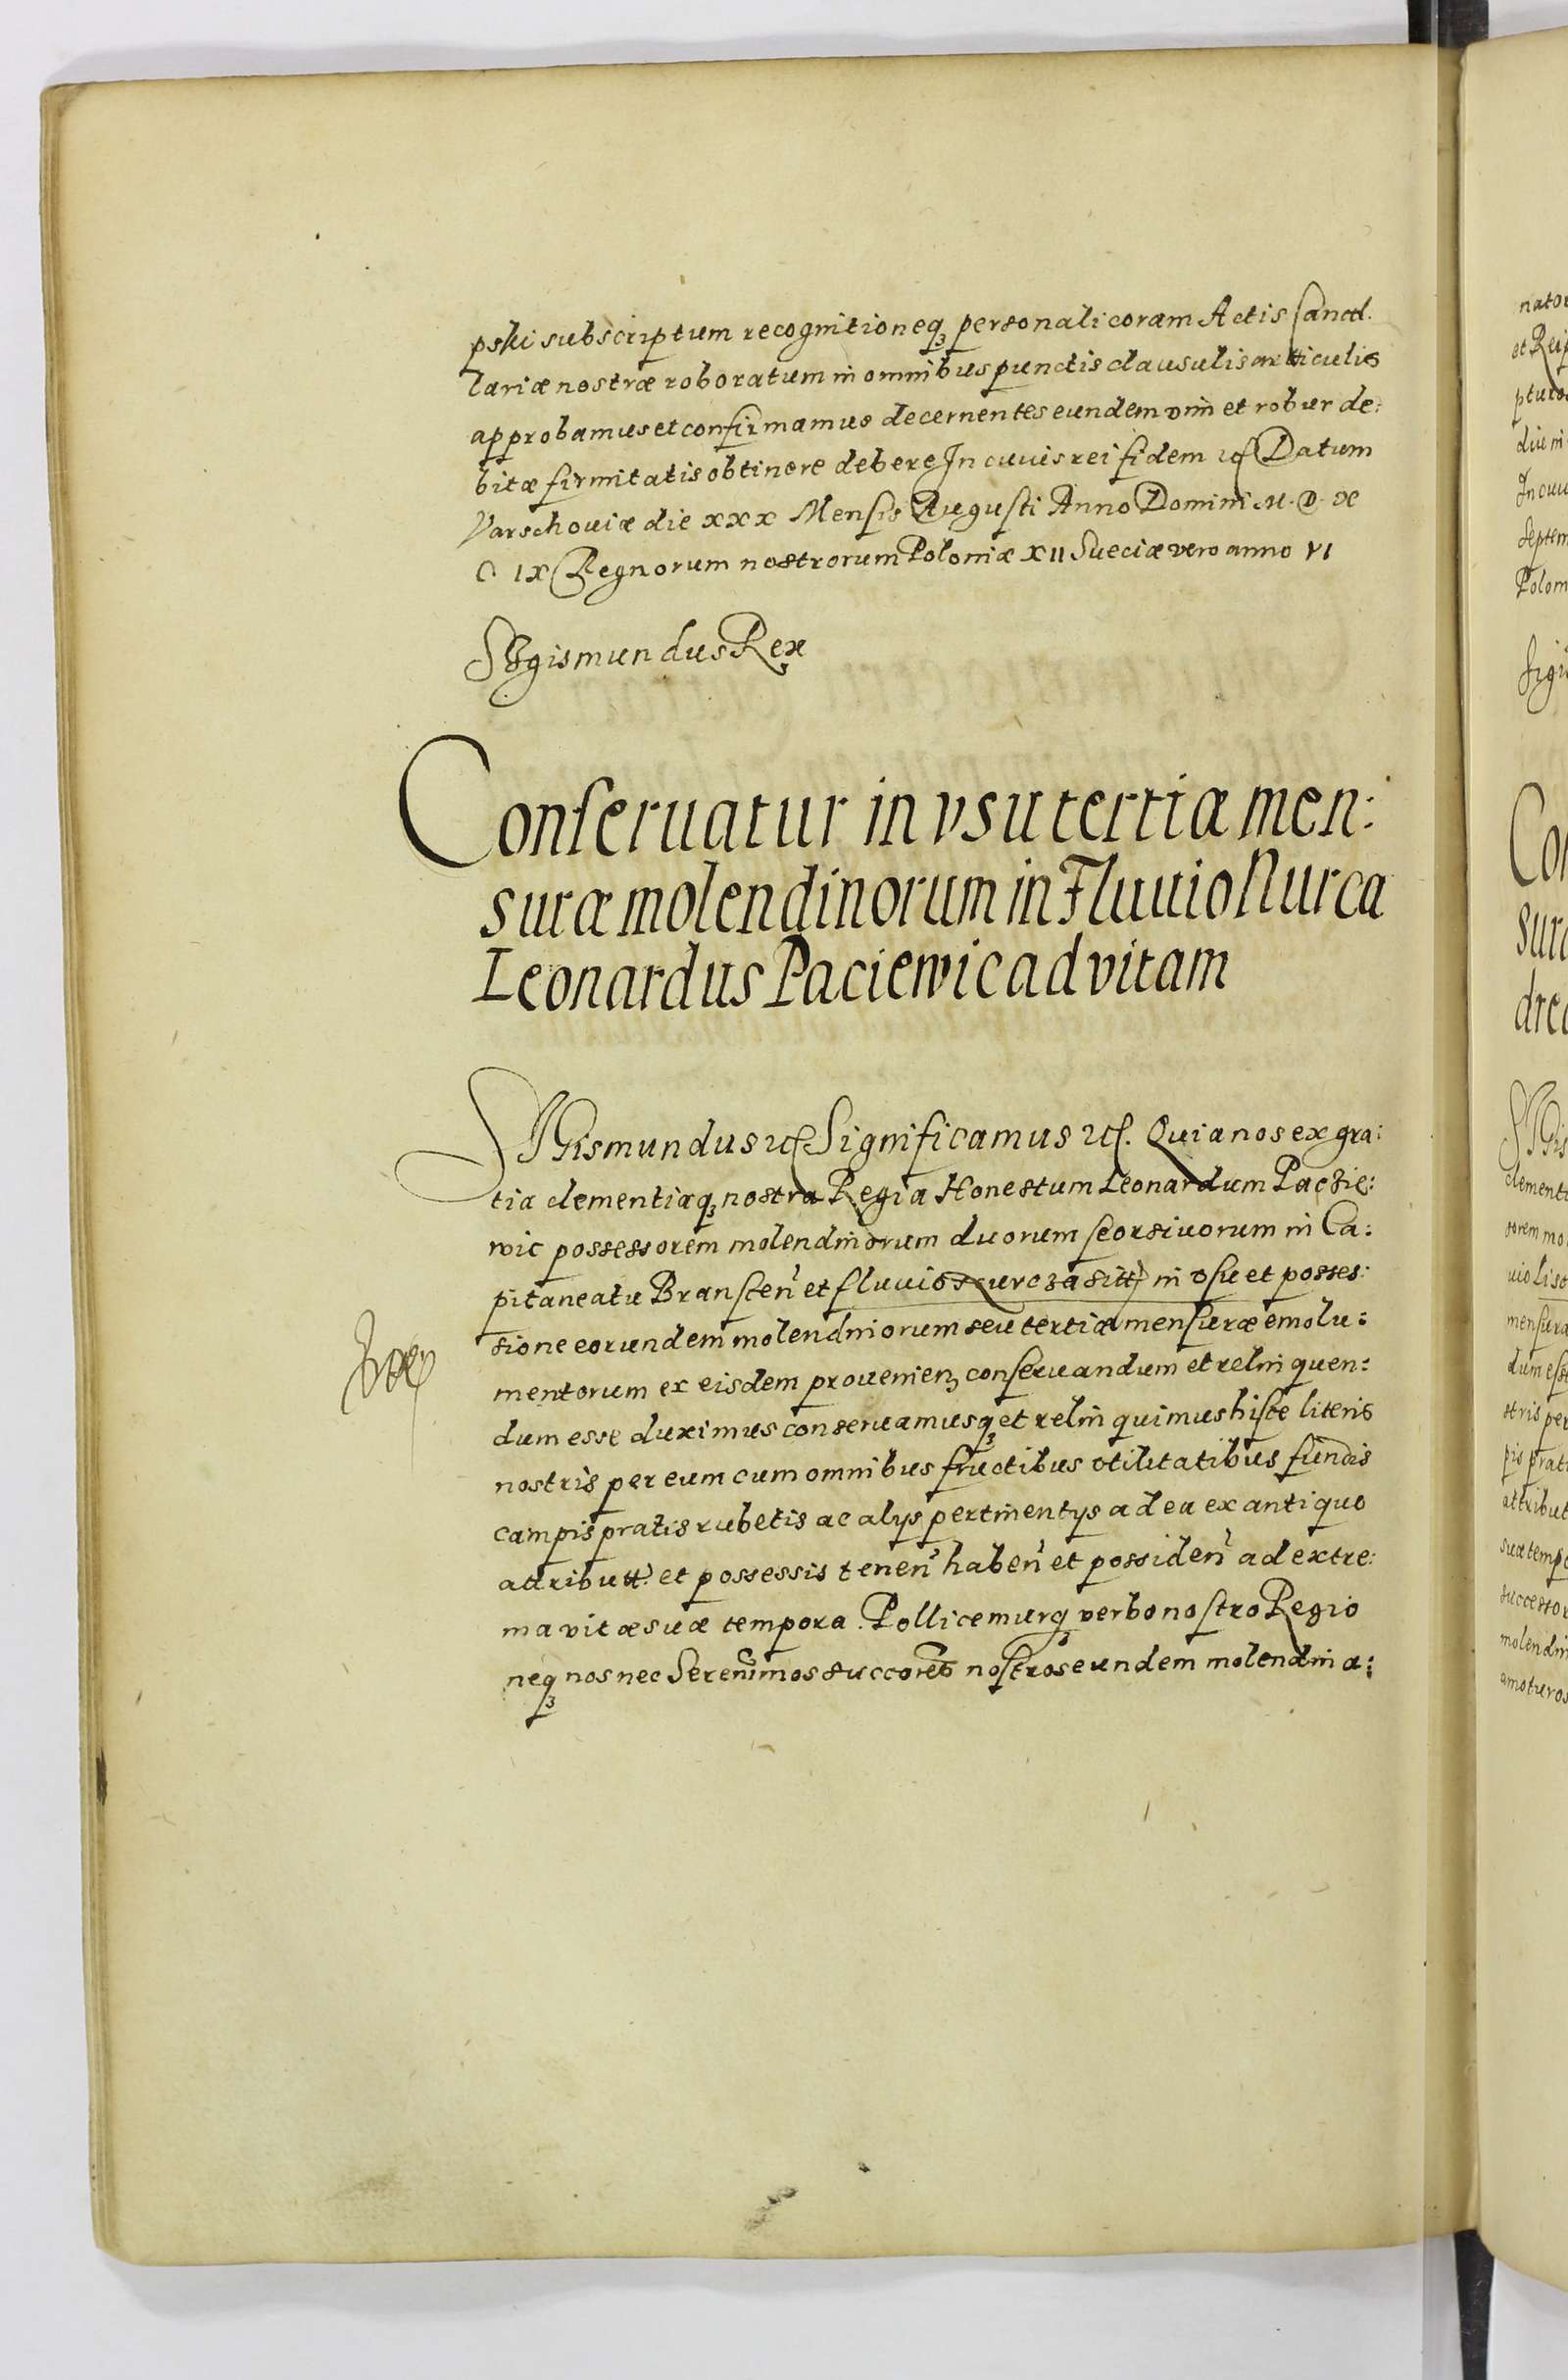 pski subscriptum recognitioneq3 personali coram Actis Cancel.
lariæ nostræ roboratum in omnibus punctis clausulis articulis
approbamus et confirmamus decernentes eundem vim et robur de:
bitæ firmitatis obtinere debere In cuius rei fidem etc Datum
Varschouiæ die xxx Mensis Augusti Anno Domini M. D. X
C IX Regnorum nostrorum Poloniæ XII Sueciæ vero anno VI
Sigismundus Rex
Conseruatur in vsu tertiæ men:
suræ molendinorum in Fluuio Nurca
Leonardus Paciewic ad vitam
SIGismundus etc Significamus etc. Quia nos ex gra:
tia clementiaq3 nostra Regia Honestum Leonardum Paczie:
wic possessorem molendinorum duorum seorsiuorum in Ca:
pitaneatu Branscen et fluuio Nurcza sitt in vsu et posses:
sione eorundem molendinorum seu tertiæ mensuræ emolu:
mentorum ex eisdem prouenien3 conseruandum et relinquen:
dum esse duximus conseruamusq3 et relinquimus hisce literis
nostris per eum cum omnibus fructibus vtilitatibus fundis
campis pratis rubetis ac alys pertinentys ad ea ex antiquo
attributt. et possessis tenen haben et possiden ad extre:
ma vitæ suæ tempora. Pollicemurq3 verbo nostro Regio
neq3 nos nec Serenimos succores nostros eundem molendina:
nator
et Reip
pturos
diu in
In cuiu
Septem
Polon
Sigis
Con
sura
drea
SIGis
clementi
sorem mo
uio Lisc
mensura
dum ess
stris per
pis prat
attribut
suæ temp
successor
molendin
amoturos